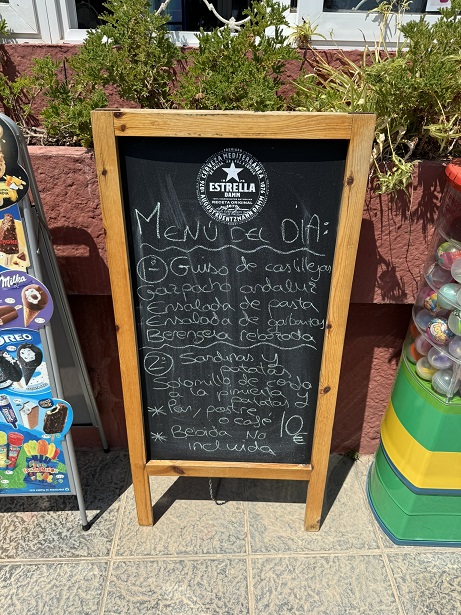 PREMIUM
CERVEZA MEDITERRÁNEA
1876
ESTRELLA
DAMM
RECETA ORIGINAL
1876
AUGUST KUENTZMANN DAMM
MENÚ DEL DIA:
1) Guiso de castillejas
Gazpacho andaluz
Ensalada de pasta
Ensalada de garbanzos
Berenjena rebozada
2) Sardinas y
patatas,
Solomillo de cerdo
a la pimienta y
patatas
* Pan, postre
o café 10€
* Bebida No
incluida
Milka
OREO